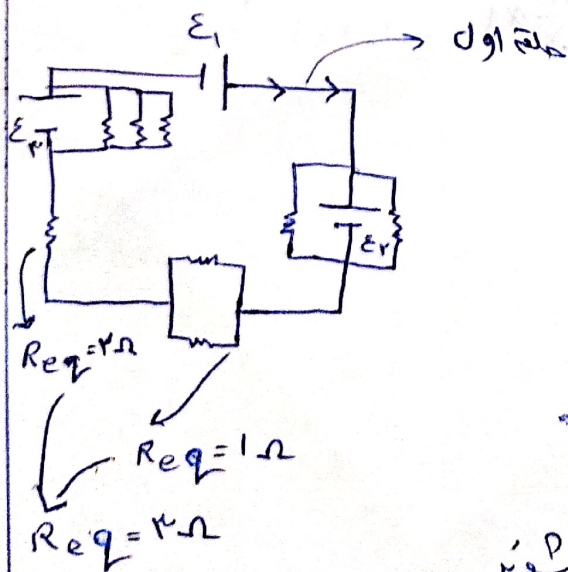 ε₁
حلقه اول
ε₃
ε₂
Req=۲Ω
Req=1Ω
Req=۳Ω